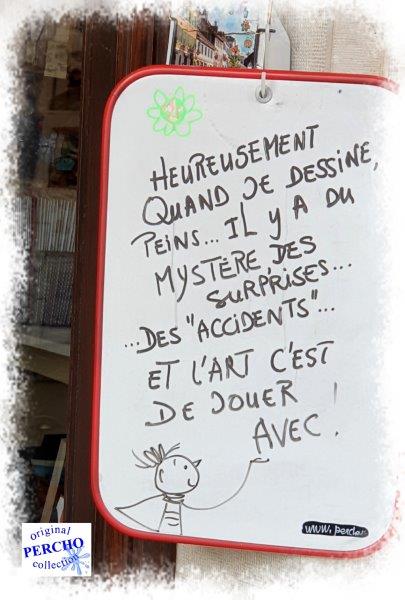 HEUREUSEMENT
QUAND JE DESSINE,
PEINS... IL Y A DU
MYSTÈRE, DES
SURPRISES...
...DES "ACCIDENTS"...
ET L'ART C'EST
DE JOUER !
AVEC.
original
PERCHO
collection